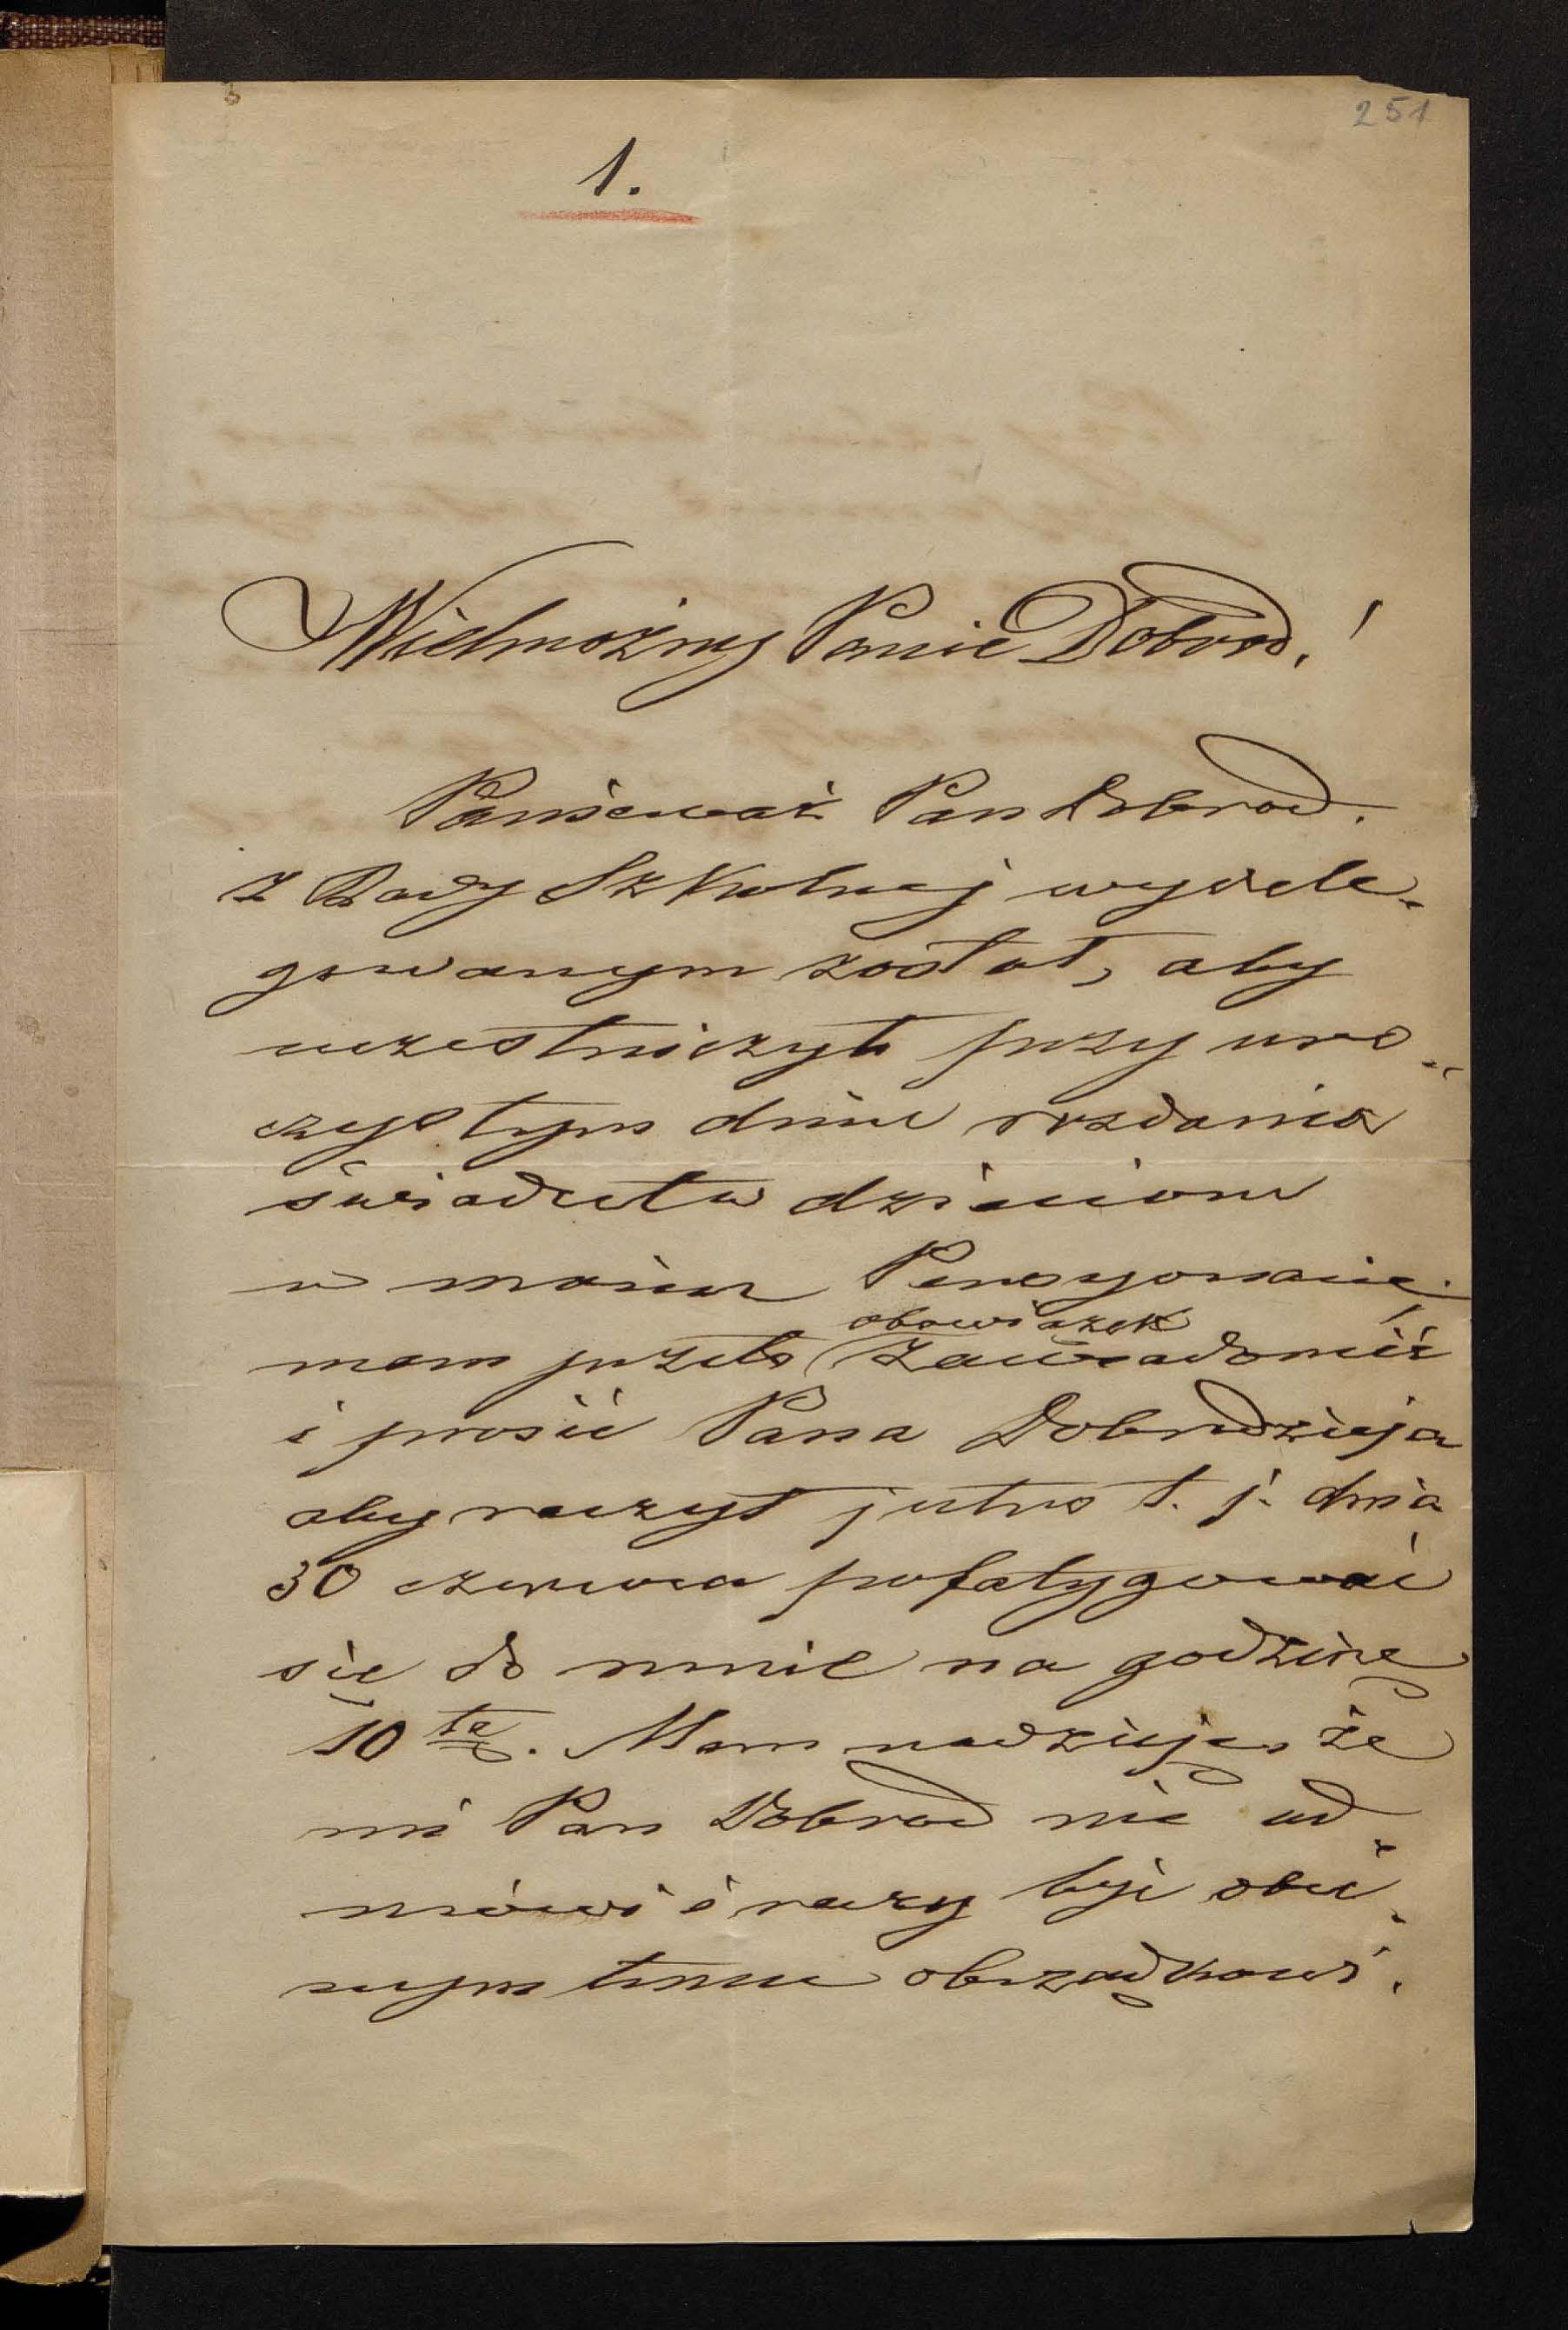 251
1.
Wielmożny Panie Dobrod.!
Ponieważ Pan Dobrod.
z Rady Szkolnej wydele-
gowanym został, aby
uczestniczył przy uro-
czystym dniu rozdania
świadectw dzieciom
w moim Pensyonacie.
obowiązek
mam przeto zawiadomić
i prosić Pana Dobrodzieja
aby raczył jutro t. j. dnia
30 czerwca pofatygować
się do mnie na godzinę
10tą. Mam nadzieję, że
mi Pan Dobrod nie od-
mówi i raczy być obec-
nym temu obrządkowi.